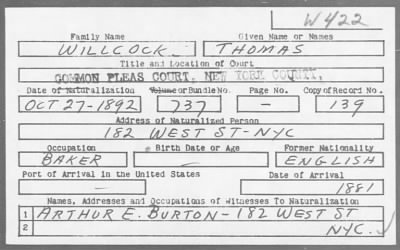 W422
Family Name Given Name or Names
WILLCOCK THOMAS
Title and Location of Court
COMMON PLEAS COURT, NEW YORK COUNTY,
Date of Naturalization Volume or Bundle No. Page No. Copy of Record No.
OCT 27-1892 737 - 139
Address of Naturalized Person
182 WEST ST-NYC
Occupation Birth Date or Age Former Nationality
BAKER - ENGLISH
Port of Arrival in the United States Date of Arrival
- 1881
Names, Addresses and Occupations of Witnesses To Naturalization
1 ARTHUR E. BURTON-182 WEST ST
2 NYC.